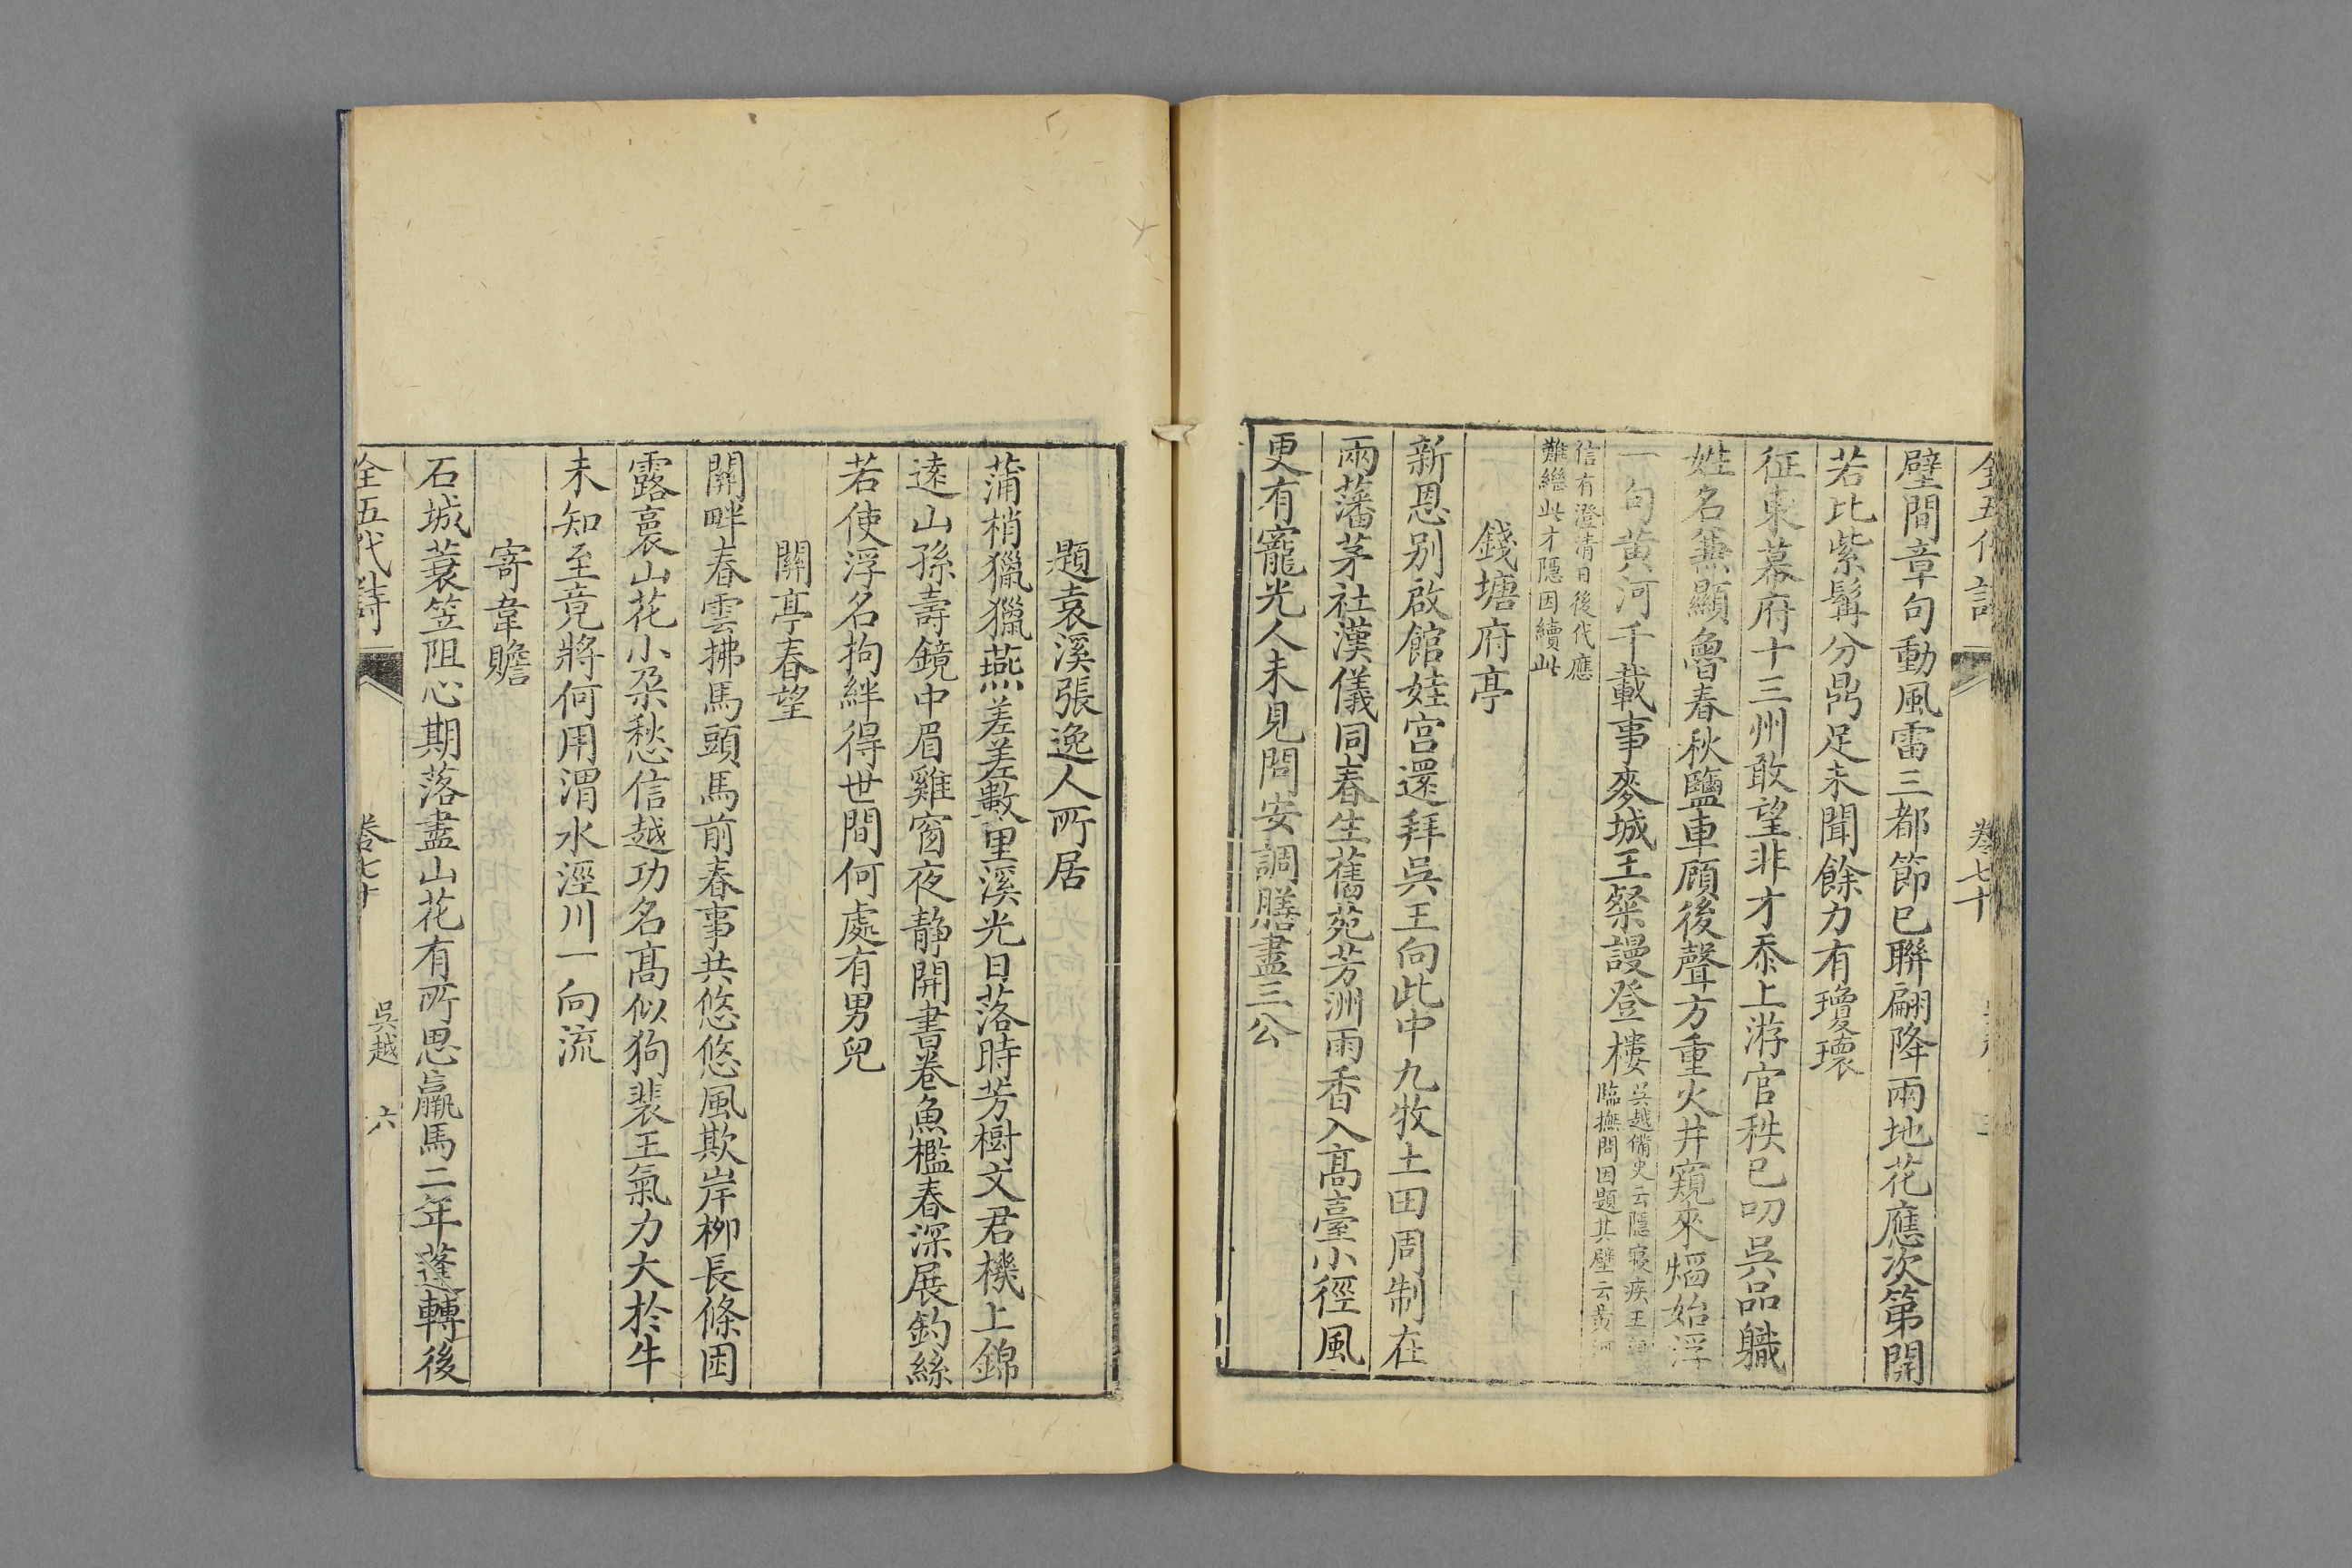 全五代詩 卷七十
壁間章句動風雷三都節已聯翩降兩地花應次第開
若比紫髯分鼎足未聞餘力有瓊瓌
征東幕府十三州敢望非才忝上游官秩已叨吳品職
姓名兼顯魯春秋鹽車顧後聲方重火井窺來焰始浮
一句黃河千載事麥城王粲謾登樓
吳越備史云隱寢疾王
臨撫問因題其壁云黃河
信有澄清日後代應
難繼此才隱因續此
錢塘府亭
新恩别啟館娃宮還拜吳王向此中九牧土田周制在
兩藩茅社漢儀同春生舊苑芳洲雨香入高臺小徑風
更有寵光人未見問安調膳盡三公
題袁溪張逸人所居
蒲梢獵獵燕差差數里溪光日落時芳樹文君機上錦
遠山孫壽鏡中眉雞窗夜静開書卷魚檻春深展釣絲
若使浮名拘絆得世間何處有男兒
關亭春望
關畔春雲拂馬頭馬前春事共悠悠風欺岸柳長條困
露裛山花小朶愁信越功名高似狗裴王氣力大於牛
未知至竟將何用渭水涇川一向流
寄韋贍
石城蓑笠阻心期落盡山花有所思羸馬二年蓬轉後
全五代詩 卷七十 吳越 六